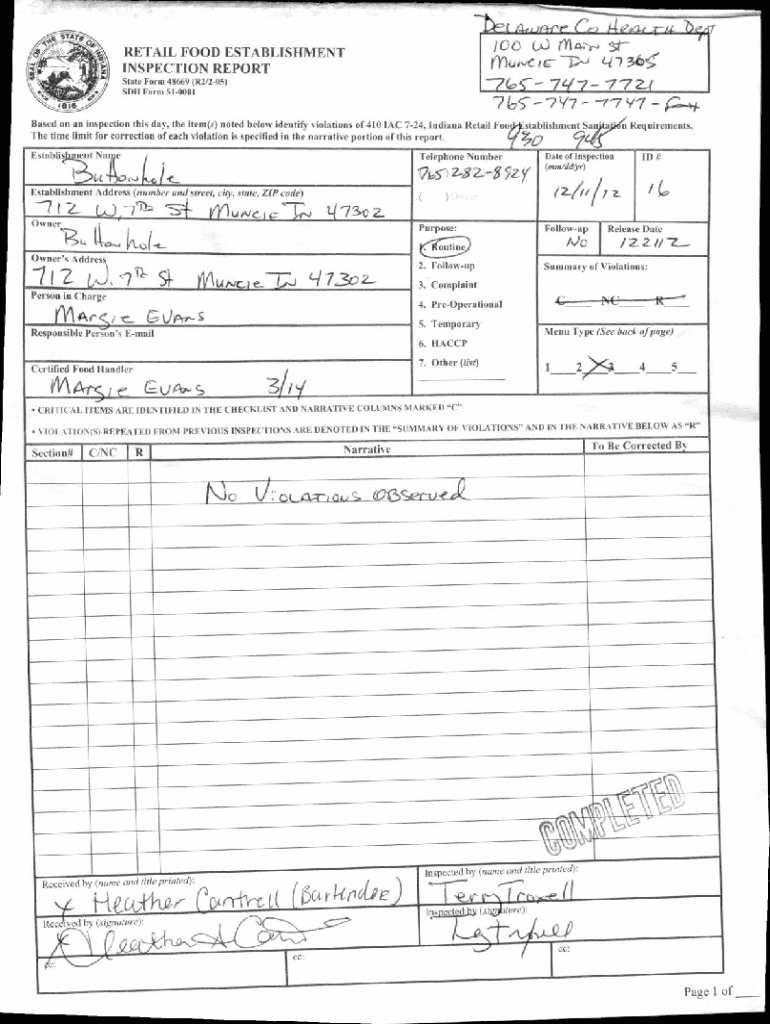 DELAWARE CO HEALTH Dept
100 W MAIN St
MUNCIE IN 47305
765-747-7721
765-747-7747-Fax
RETAIL FOOD ESTABLISHMENT
INSPECTION REPORT
State Form 48669 (R2/2-05)
SDH Form 51-0001
SEAL OF THE STATE OF INDIANA
1816
Based on an inspection this day, the item(s) noted below identify violations of 410 IAC 7-24, Indiana Retail Food Establishment Sanitation Requirements.
The time limit for correction of each violation is specified in the narrative portion of this report.
930 945
Establishment Name
Buttonhole
Telephone Number
(765) 282-8924
( ) Owner
Date of Inspection
(mm/dd/yr)
12/11/12
ID #
16
Establishment Address (number and street, city, state, ZIP code)
712 W. 7th St MUNCIE IN 47302
Owner
Buttonhole
Purpose:
1. Routine
2. Follow-up
3. Complaint
4. Pre-Operational
5. Temporary
6. HACCP
7. Other (list)
Follow-up
No
Release Date
122112
Owner's Address
712 W. 7th St MUNCIE IN 47302
Summary of Violations:
C NC R
Person in Charge
MARGIE EVANS
Responsible Person's E-mail
Menu Type (See back of page)
1 2 X 3 4 5
Certified Food Handler
MARGIE EVANS 3/14
• CRITICAL ITEMS ARE IDENTIFIED IN THE CHECKLIST AND NARRATIVE COLUMNS MARKED "C"
• VIOLATION(S) REPEATED FROM PREVIOUS INSPECTIONS ARE DENOTED IN THE "SUMMARY OF VIOLATIONS" AND IN THE NARRATIVE BELOW AS "R"
Section# C/NC R Narrative To Be Corrected By
No Violations Observed
COMPLETED
Received by (name and title printed):
x Heather Cantrell (Bartender)
Inspected by (name and title printed):
Terry Troxell
Received by (signature):
Inspected by (signature):
cc:
cc:
cc:
Page 1 of